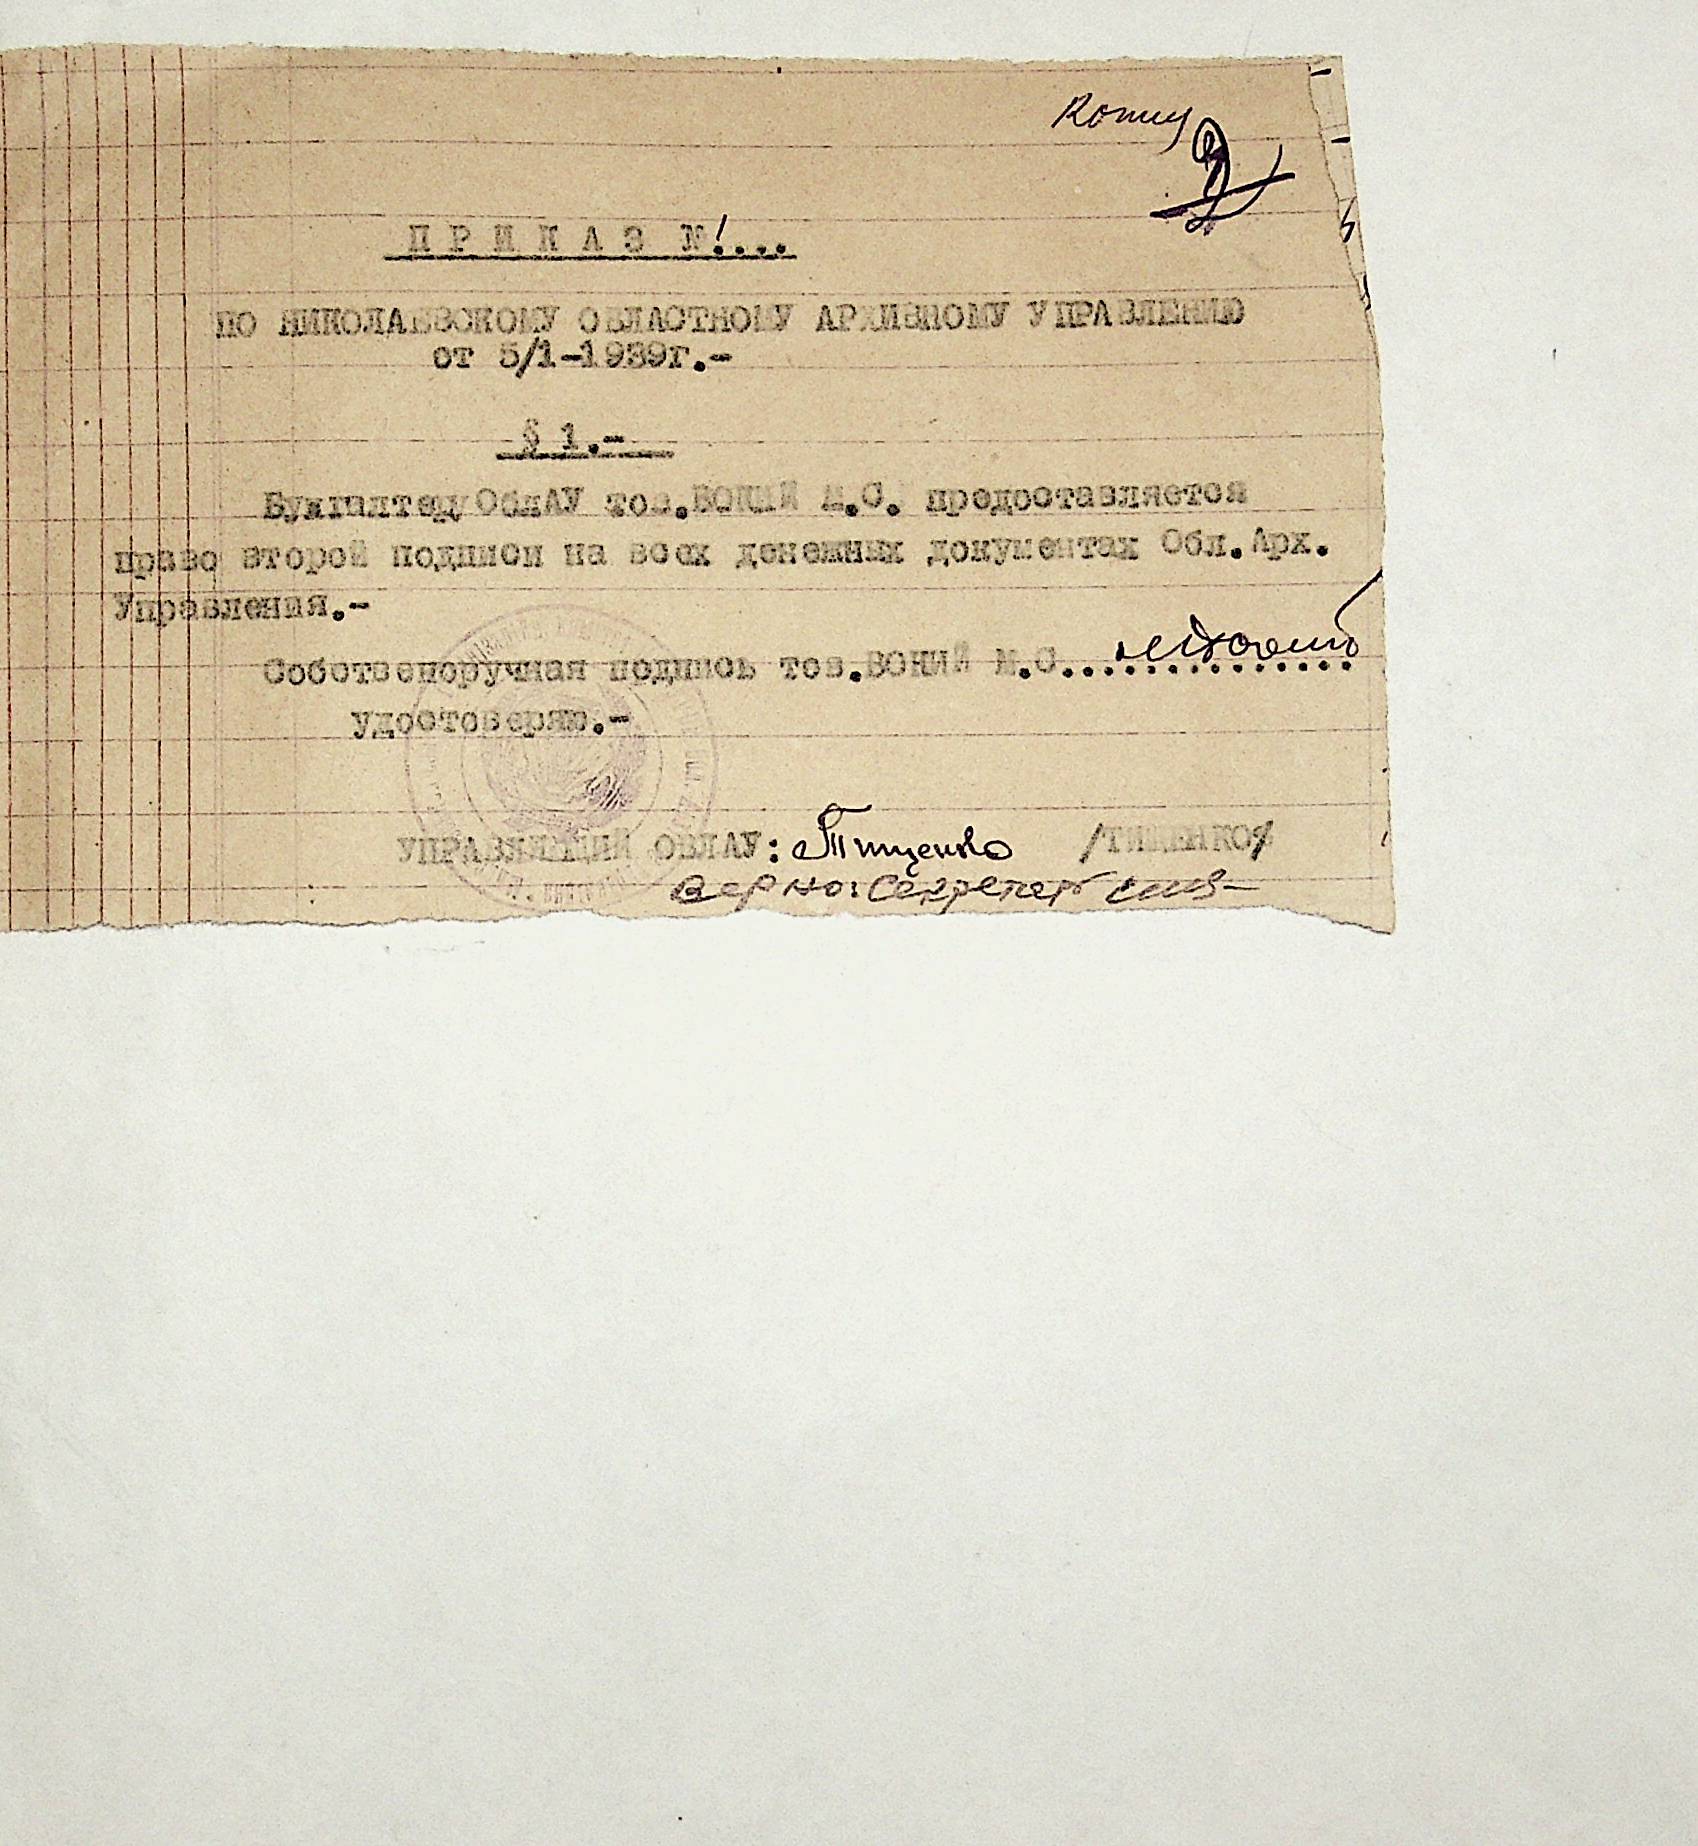 Копия
2
П Р И К А З № 1...
ПО НИКОЛАЕВСКОМУ ОБЛАСТНОМУ АРХИВНОМУ УПРАВЛЕНИЮ
от 5/1-1939г.-
§ 1.-
Бухгалтеру ОблАУ тов.ВОНИЙ М.С. предоставляется
право второй подписи на всех денежных документах Обл.Арх.
Управления.-
Собственоручная подпись тов.ВОНИЙ М.С...............
удостоверяю.-
УПРАВЛЯЮЩИЙ ОБЛАУ: Тищенко /ТИЩЕНКО/
Верно: Секретарь